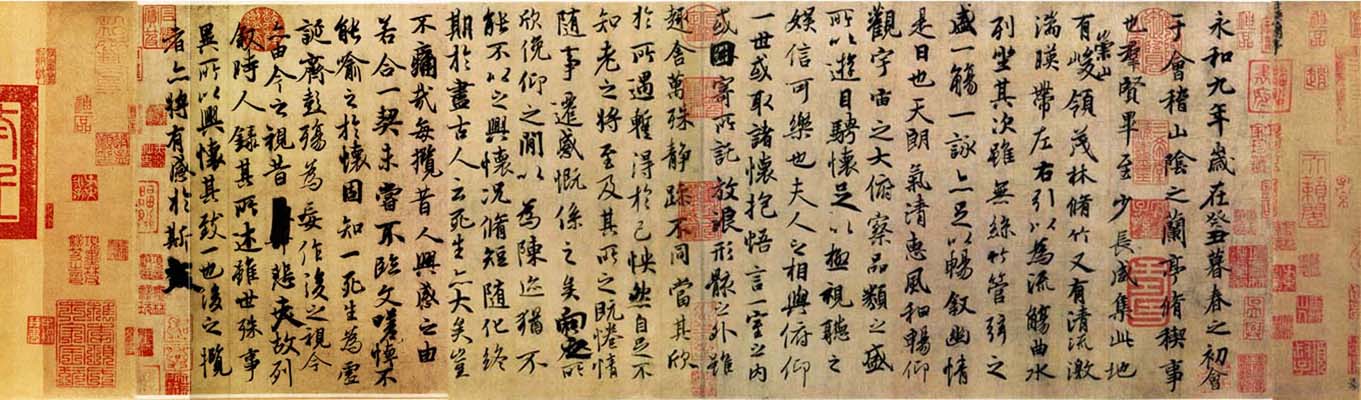 永和九年歲在癸丑暮春之初會
于會稽山陰之蘭亭脩稧事
也羣賢畢至少長咸集此地
有崇山峻領茂林脩竹又有清流激
湍暎帶左右引以為流觴曲水
列坐其次雖無絲竹管弦之
盛一觴一詠亦足以暢敘幽情
是日也天朗氣清惠風和暢仰
觀宇宙之大俯察品類之盛
所以遊目騁懷足以極視聽之
娛信可樂也夫人之相與俯仰
一世或取諸懷抱悟言一室之內
或因寄所託放浪形骸之外雖
趣舍萬殊靜躁不同當其欣
於所遇蹔得於己怏然自足不
知老之將至及其所之既惓情
隨事遷感慨係之矣向之所
欣俛仰之間以為陳迹猶不
能不以之興懷況脩短隨化終
期於盡古人云死生亦大矣豈
不痛哉每攬昔人興感之由
若合一契未嘗不臨文嗟悼不
能喻之於懷固知一死生為虛
誕齊彭殤為妄作後之視今
亦由今之視昔悲夫故列
敘時人錄其所述雖世殊事
異所以興懷其致一也後之攬
者亦將有感於斯文